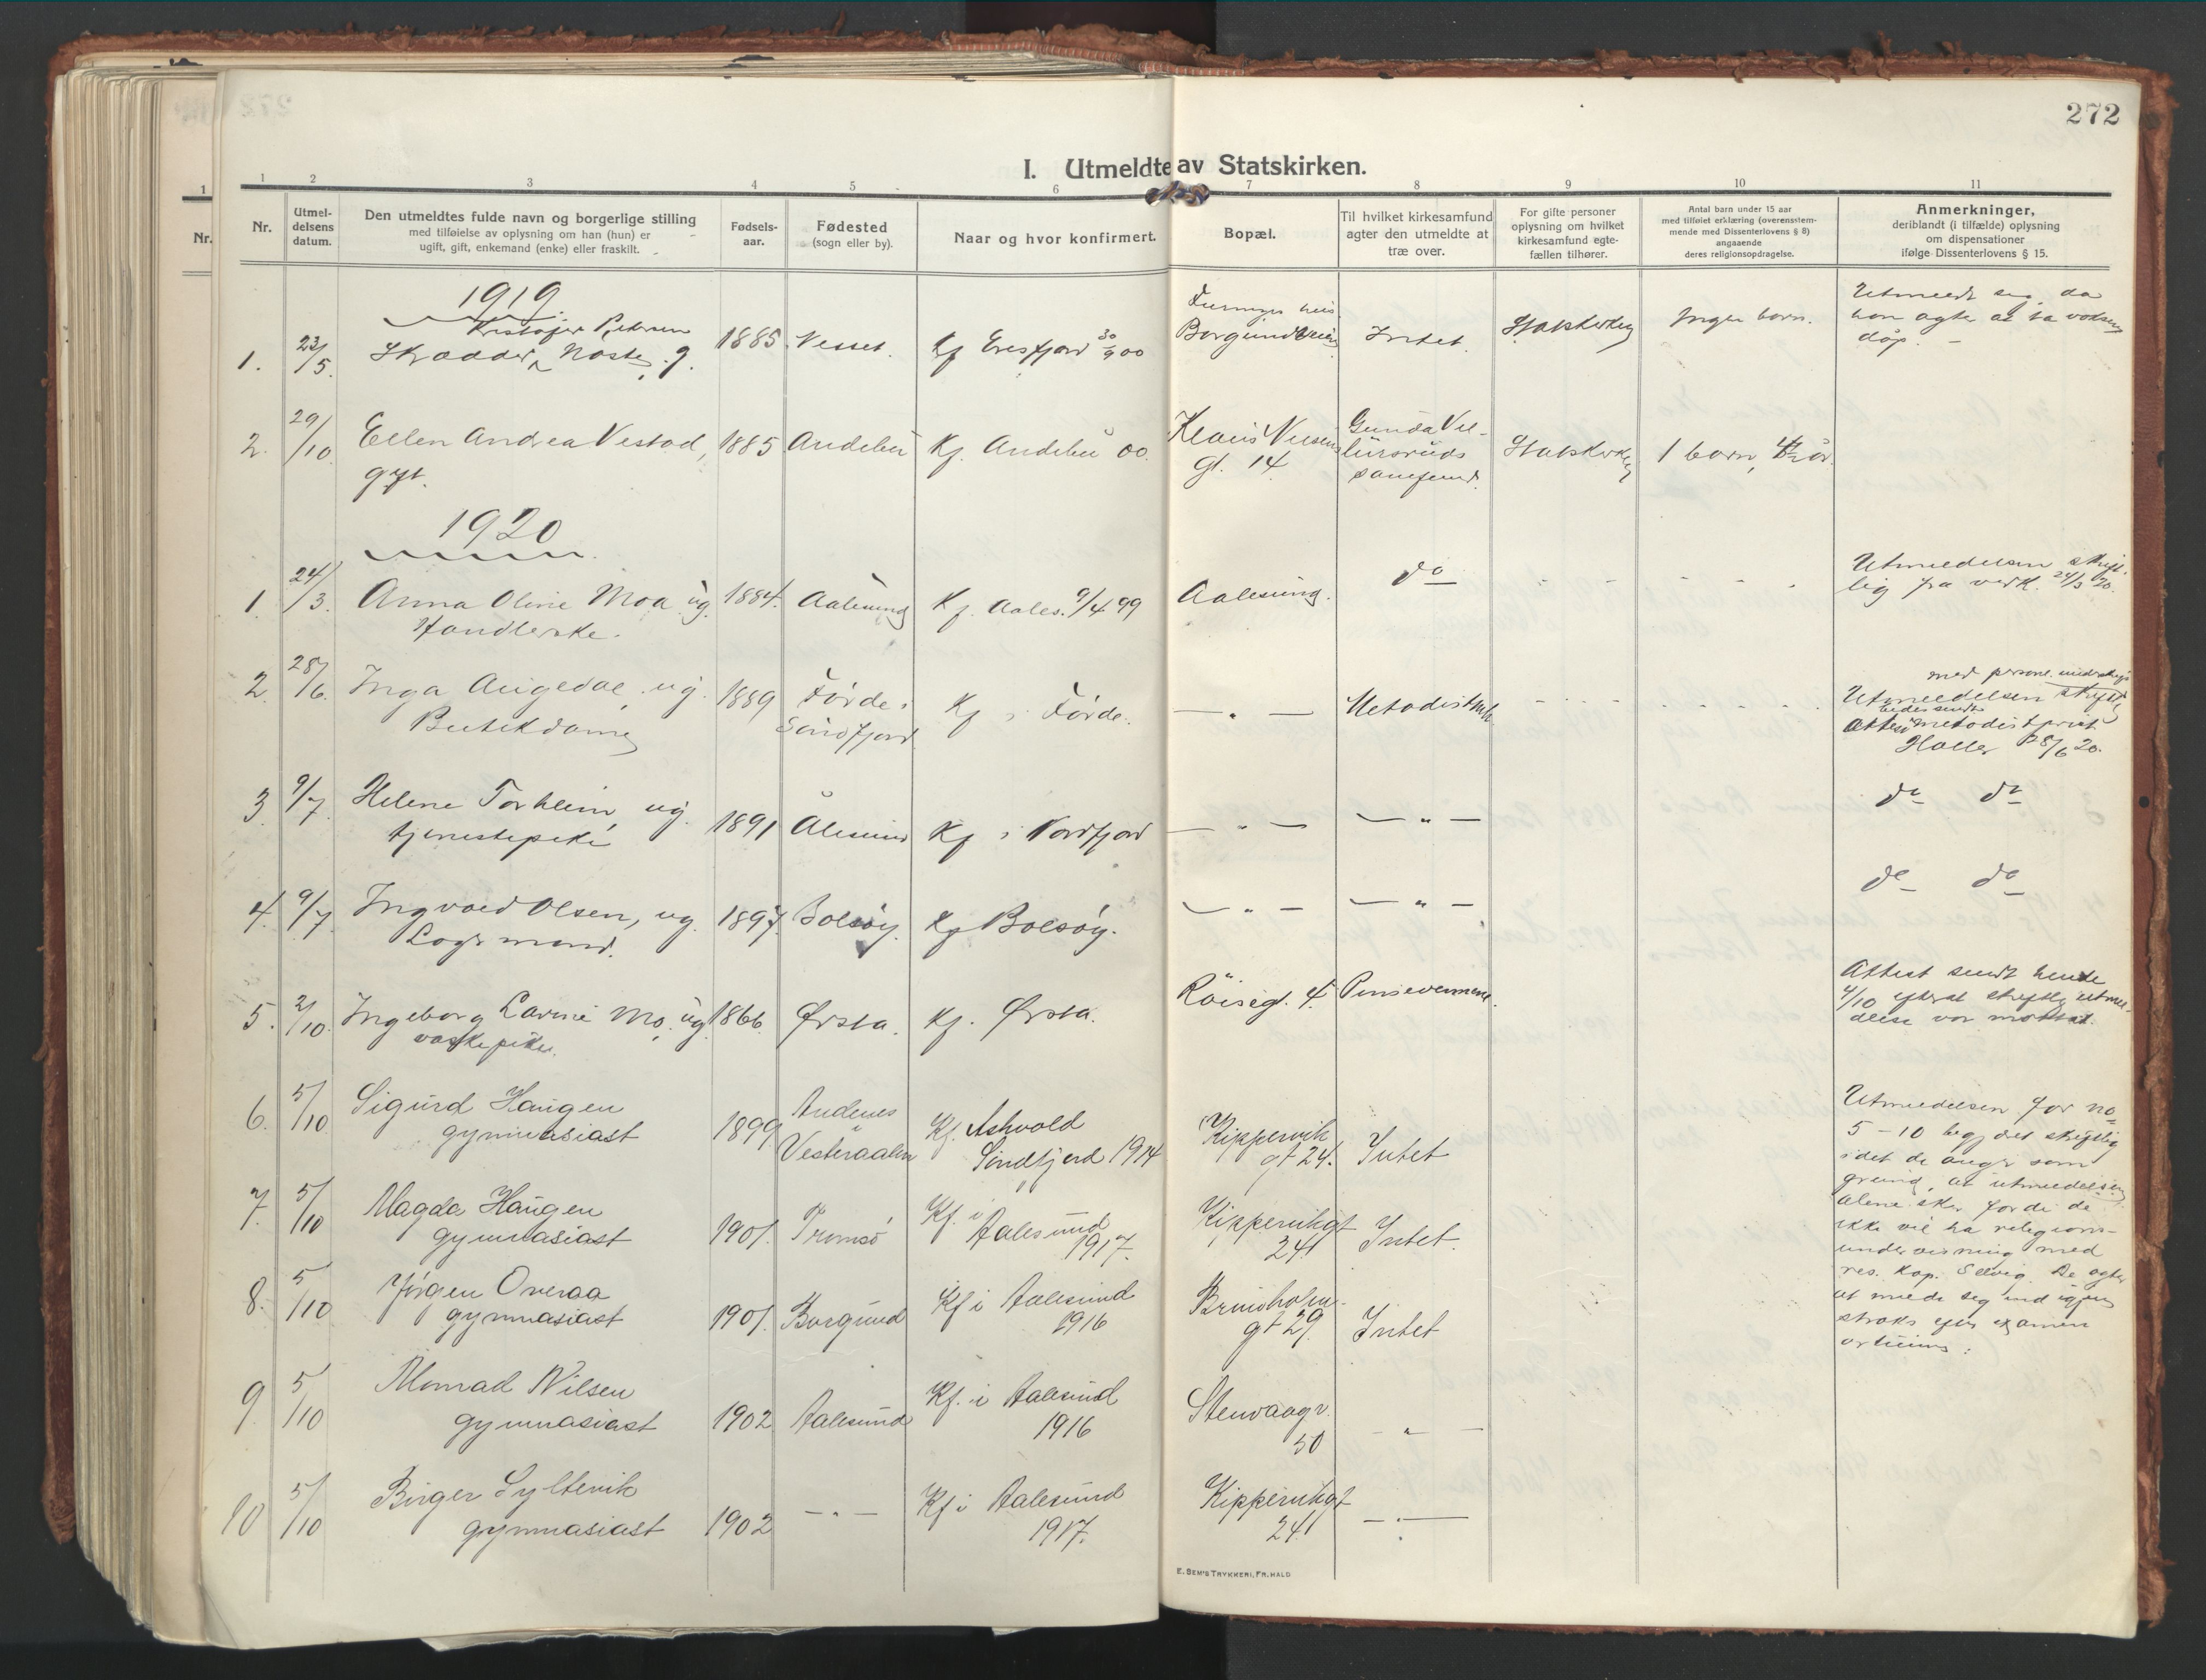 272
I. Utmeldte av Statskirken.
1 2 3 4 5 6 7 8 9 10 11
Nr.
Utmel-
delsens
datum.
Den utmeldtes fulde navn og borgerlige stilling
med tilføielse av oplysning om han (hun) er
ugift, gift, enkemand (enke) eller fraskilt.
Fødsels-
aar.
Fødested
(sogn eller by).
Naar og hvor konfirmert.
Bopæl.
Til hvilket kirkesamfund
agter den utmeldte at
træ over.
For gifte personer
oplysning om hvilket
kirkesamfund egte-
fællen tilhører.
Antal barn under 15 aar
med tilføiet erklæring (overensstem-
mende med Dissenterlovens § 8)
angaaende
deres religionsopdragelse.
Anmerkninger,
deriblandt (i tilfælde) oplysning
om dispensationer
ifølge Dissenterlovens § 15.
1
Nr.
1919
1. 23/5. Skrædder Kristofer Petersen Nøste, g. 1885 Nesset. Kf Eresfjord 30/9 00
hus
Borgundveien
Intet.
Statskirken
Ingen barn.
Utmeldt seg, da
han agter at ta voksen
dåp. -
2. 29/10 Ellen Andrea Vestad, 1885 Andebu Kf. Andebu 00.
gift.
Klaus Nilsens
gt. 14
Gunda Vel-
lursruds
samfund.
Statskirken
1 barn,
1920
1. 24/3. Anna Oline Moa ug. 1884. Aalesund Kf. Aales. 9/4 99 Aalesund. do
Handlerske.
Utmeldelsen skrift-
lig fra vedk. 24/3 20.
2 28/6. Inga Angedal, ug. 1889 Førde i Kf i Førde. — " — Metodistkirk
Butikdame Søndfjord
med person. underskrift
Utmeldelsen skriftl.
Attest metodistprest
Haller 28/6 20.
3. 9/7. Helene Torheim, ug. 1891 Ålesund Kf i Nordfjord — " — — " — do do
tjenestepike
4. 9/7. Ingvald Olsen, ug. 1897. Bolsøy. Kf Bolsøy. — " — — " — do do
Lagermand.
5. 2/10. Ingeborg Larine Mo, ug. 1866. Ørsta. Kf. Ørsta. Røisegt. 4. Pinsevennene.
vaskepike.
Attest sendt hende
4/10 efterat skriftlig utmel-
delse var mottat.
6. 5/10 Sigurd Haugen
gymnasiast 1899
Andenes
i
Vesteraalen
Kf. Askvold
Søndfjord 1914
Kippervik
gt 24. Intet
7. 5/10 Magda Haugen
gymnasiast 1901. Tromsø
Kf. i
Aalesund
1917.
Kippervikgt
24. Intet.
8. 5/10 Jørgen Overaa
gymnasiast 1901. Borgund
Kf i Aalesund
1916
Brunholm-
gt 29. Intet
9. 5/10 Monrad Nilsen
gymnasiast 1902 Aalesund
Kf. i Aalesund
1916
Stenvaagv.
50 — " —
10 5/10 Birger Syltevik
gymnasiast 1902 — " —
Kf i Aalesund
1917.
Kippervikgt
24. — " —
Utmeldelsen for no
5 - 10 begjært skriftlig
idet de angir som
grund, at utmeldelsen
alene sker fordi de
ikke vil ha religions-
undervisning med
res. kap. Selvig. De agter
at melde seg ind igjen
straks efter examen
artium.
E. SEM'S TRYKKERI, FR.HALD